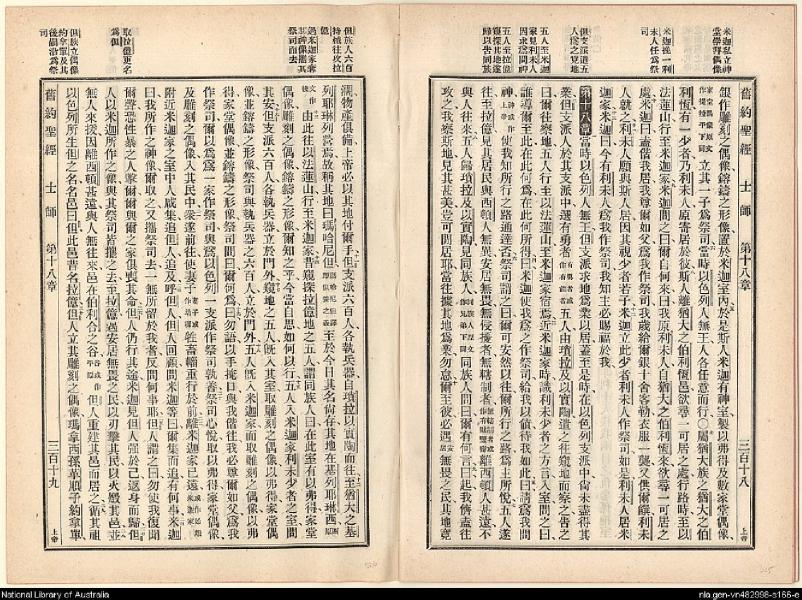 米迦私立神
堂學拜偶像
米迦後一利
未人任爲祭
司
但支派遣五
人爲之覓地
五人至米迦
家見利未人
因求爲問神
五人至拉億
窺探其地遂
歸以告同族
銀作雕刻之偶像鎔鑄之形像置於米迦室內於是斯人米迦有神室製以弗得及數家堂偶像
立其一子爲祭司當時以色列人無王人各任意而行〇屬猶大族之猶大之伯
利恆有一少者乃利未人原寄居於彼斯人離猶大之伯利恆邑欲尋一可居之處行路時至以
法蓮山行至米迦家米迦問之曰爾自何來曰我原利未人自猶大之伯利恆來欲尋一可居之
處米迦曰盍偕我居我尊爾如父爲我作祭司我歲給爾銀十舍客勒衣服一襲又供爾饌利未
人就之利未人願與斯人居因其視少者若子米迦立此少者利未人作祭司如是利未人居米
迦家米迦曰今有利未人爲我作祭司我知主必賜福於我
第十八章 當時以色列人無王但支派求地爲業以居蓋至是時在以色列支派中尚未盡得其
業但支派人於其支派中選有勇者五人由瑣拉及以實陶遣之往窺地而察之告之
曰爾往察地五人行至以法蓮山至米迦家宿焉近米迦家時識利未少者之方言入室問之曰
誰導爾至此在此何爲在此何所得曰米迦如此如此待我以値使我爲之作祭司曰請爲我問
使我知所行之路通達否祭司謂之曰爾可安然以往爾所行之路爲主所悅五人遂
往至拉億見其居民與西頓人無異安居無畏無侵擾者無轄制者離西頓人甚遠不
與人往來五人歸瑣拉及以實陶見同族人同族人問曰爾有何言曰起我儕盍往
攻之我察斯地見其甚美豈可閒居耶當往據其地爲業勿怠爾至彼必遇無畏之民其地寬
舊約聖經 士師 第十八章
三百十八
上帝
但族人六百
持械往攻拉
億
過米迦家奪
其神像攜其
祭司而去
取拉億更名
爲但
但族立偶像
約拿單及其
後嗣爲祭
司
舊約聖經 士師 第十八章
三百十九
上帝
濶物產俱備上帝必以其地付爾手但支派六百人各執兵器自瑣拉以實陶而往至猶大之基
列耶琳列營焉故稱其地曰瑪哈尼但至於今日其名尚存其地在基列耶琳西
由此往以法蓮山行至米迦家昔窺探拉億地之五人謂同族人曰在此室有以弗得家堂
偶像雕刻之偶像鎔鑄之形像爾知之乎今當自思如何以行五人入米迦家利未少者之室問
其安但支派六百人各執兵器立於門外窺地之五人旣入其室取雕刻之偶像以弗得家堂偶
像並鎔鑄之形像祭司與執兵器之六百人立於門外五人旣入米迦家而取雕刻之偶像以弗
得家堂偶像並鎔鑄之形像祭司問之曰爾何爲曰勿語以手掩口與我偕往我必尊爾如父爲我
作祭司爾以爲爲一家作祭司與爲以色列一支派作祭司孰善祭司心悅取以弗得家堂偶像
及雕刻之偶像入其民中衆遂前往使妻子牲畜輜重行於前離米迦家已遠
附近米迦家之室中人咸集追但人追及呼但人但人回顧問米迦曰爾集而追有何事米迦
曰我所作之神像爾取之又攜祭司去一無所留於我者反問何事耶但人謂之曰勿使我復聞
爾聲恐性暴之人擊爾爾與爾之家俱喪其命但人仍行其途米迦見但人強於己遂返身而歸但
人以米迦所作之像與其祭司若攜之去至拉億遇安居無畏之民以刃擊其民以火燬其邑並
無人來援因離西頓甚遠與人無往來邑在伯利合之谷但人重建其邑而居之循其祖
以色列所生但之名名邑曰但此邑昔名拉億但人立其雕刻之偶像瑪拿西孫革順子約拿單
National Library of Australia
nla.gen-vn482998-s166-e